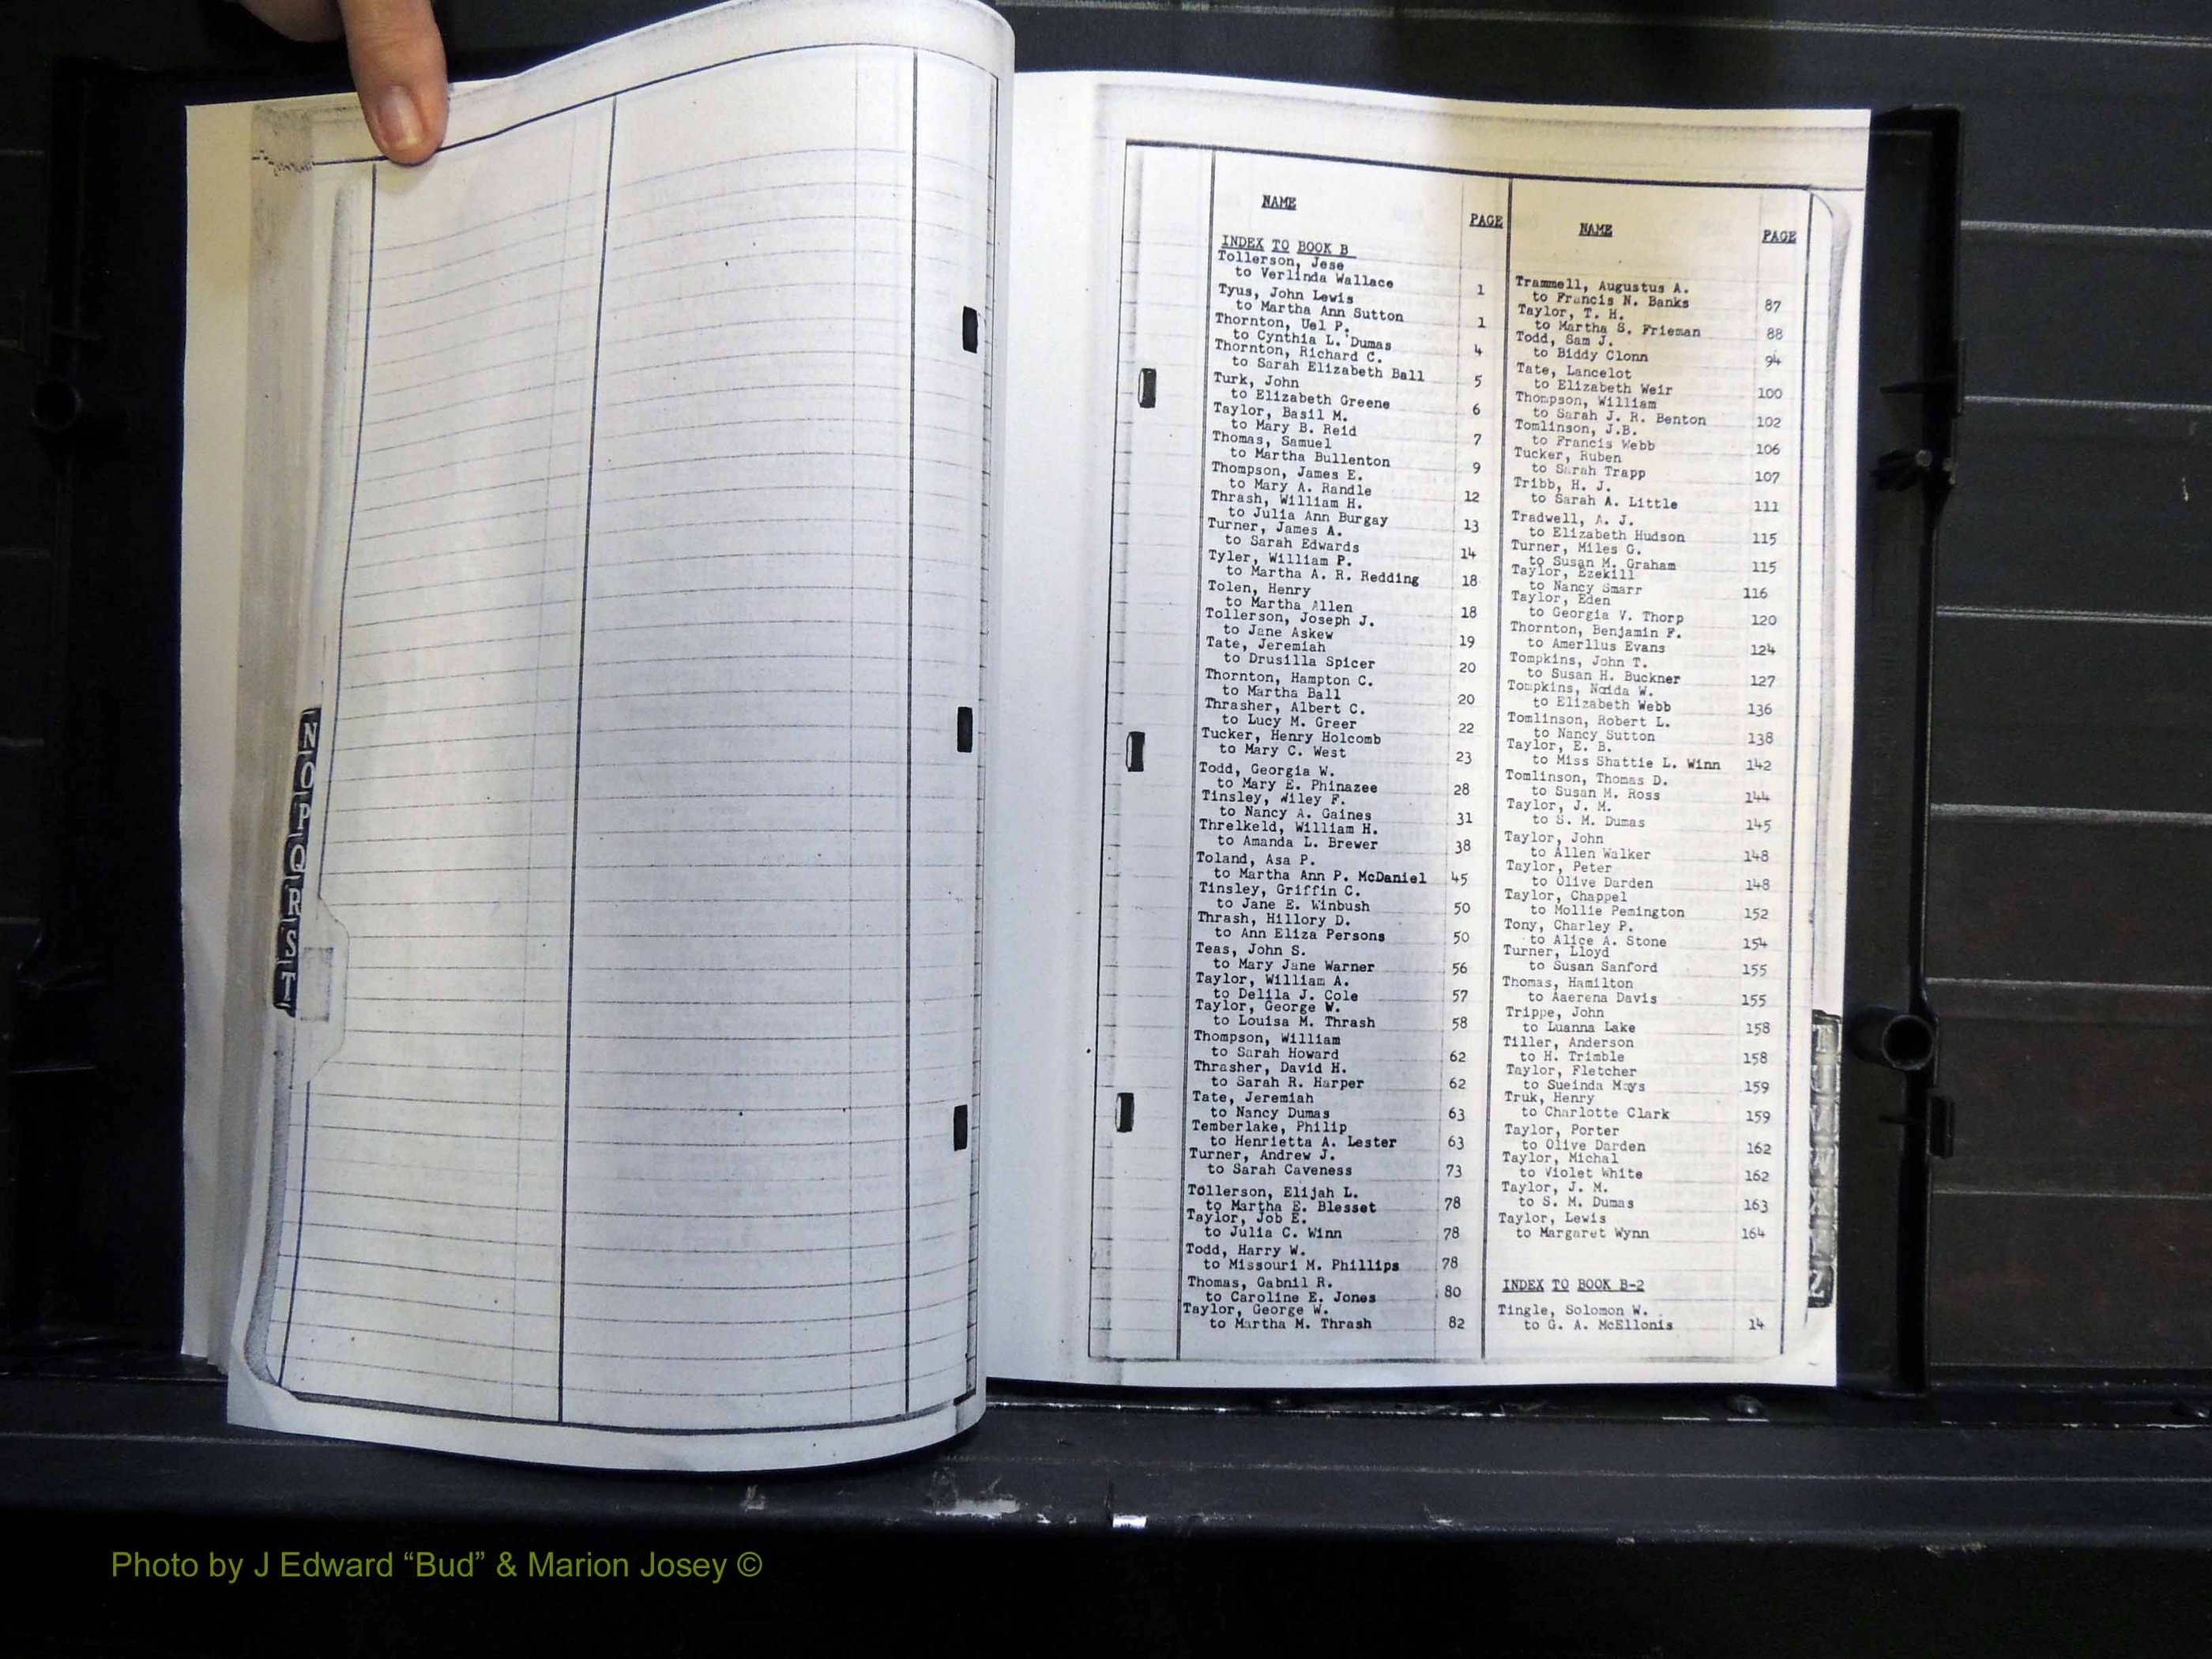 N
O
P
Q
R
S
T
NAME
PAGE
INDEX TO BOOK B
Tollerson, Jese
to Verlinda Wallace 1
Tyus, John Lewis
to Martha Ann Sutton 1
Thornton, Uel P.
to Cynthia L. Dumas 4
Thornton, Richard C.
to Sarah Elizabeth Ball 5
Turk, John
to Elizabeth Greene 6
Taylor, Basil M.
to Mary B. Reid 7
Thomas, Samuel
to Martha Bullenton 9
Thompson, James E.
to Mary A. Randle 12
Thrash, William H.
to Julia Ann Burgay 13
Turner, James A.
to Sarah Edwards 14
Tyler, William P.
to Martha A. R. Redding 18
Tolen, Henry
to Martha Allen 18
Tollerson, Joseph J.
to Jane Askew 19
Tate, Jeremiah
to Drusilla Spicer 20
Thornton, Hampton C.
to Martha Ball 20
Thrasher, Albert C.
to Lucy M. Greer 22
Tucker, Henry Holcomb
to Mary C. West 23
Todd, Georgia W.
to Mary E. Phinazee 28
Tinsley, Wiley F.
to Nancy A. Gaines 31
Threlkeld, William H.
to Amanda L. Brewer 38
Toland, Asa P.
to Martha Ann P. McDaniel 45
Tinsley, Griffin C.
to Jane E. Winbush 50
Thrash, Hillory D.
to Ann Eliza Persons 50
Teas, John S.
to Mary Jane Warner 56
Taylor, William A.
to Delila J. Cole 57
Taylor, George W.
to Louisa M. Thrash 58
Thompson, William
to Sarah Howard 62
Thrasher, David H.
to Sarah R. Harper 62
Tate, Jeremiah
to Nancy Dumas 63
Temberlake, Philip
to Henrietta A. Lester 63
Turner, Andrew J.
to Sarah Caveness 73
Tollerson, Elijah L.
to Martha E. Blesset 78
Taylor, Job E.
to Julia C. Winn 78
Todd, Harry W.
to Missouri M. Phillips 78
Thomas, Gabnil R.
to Caroline E. Jones 80
Taylor, George W.
to Martha M. Thrash 82
NAME
PAGE
Trammell, Augustus A.
to Francis N. Banks 87
Taylor, T. H.
to Martha S. Frieman 88
Todd, Sam J.
to Biddy Clonn 94
Tate, Lancelot
to Elizabeth Weir 100
Thompson, William
to Sarah J. R. Benton 102
Tomlinson, J.B.
to Francis Webb 106
Tucker, Ruben
to Sarah Trapp 107
Tribb, H. J.
to Sarah A. Little 111
Tradwell, A. J.
to Elizabeth Hudson 115
Turner, Miles G.
to Susan M. Graham 115
Taylor, Ezekill
to Nancy Smarr 116
Taylor, Eden
to Georgia V. Thorp 120
Thornton, Benjamin F.
to Amerllus Evans 124
Tompkins, John T.
to Susan H. Buckner 127
Tompkins, Naida W.
to Elizabeth Webb 136
Tomlinson, Robert L.
to Nancy Sutton 138
Taylor, E. B.
to Miss Shattie L. Winn 142
Tomlinson, Thomas D.
to Susan M. Ross 144
Taylor, J. M.
to S. M. Dumas 145
Taylor, John
to Allen Walker 148
Taylor, Peter
to Olive Darden 148
Taylor, Chappel
to Mollie Pemington 152
Tony, Charley P.
to Alice A. Stone 154
Turner, Lloyd
to Susan Sanford 155
Thomas, Hamilton
to Aaerena Davis 155
Trippe, John
to Luanna Lake 158
Tiller, Anderson
to H. Trimble 158
Taylor, Fletcher
to Sueinda Mays 159
Truk, Henry
to Charlotte Clark 159
Taylor, Porter
to Olive Darden 162
Taylor, Michal
to Violet White 162
Taylor, J. M.
to S. M. Dumas 163
Taylor, Lewis
to Margaret Wynn 164
INDEX TO BOOK B-2
Tingle, Solomon W.
to G. A. McEllonis 14
Photo by J Edward “Bud” & Marion Josey ©